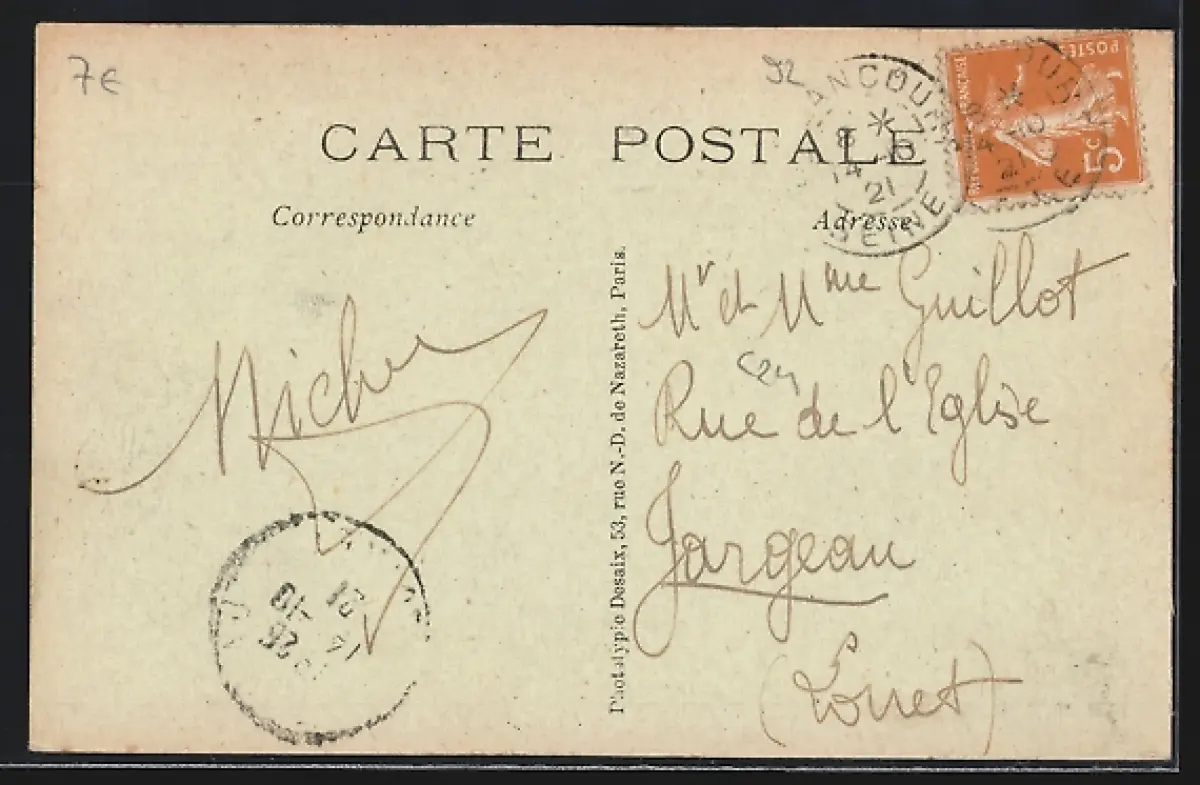 7€
92
CARTE POSTALE
Correspondance
Adresse
ANCOU
8 *
14
21
SEINE
POSTES
FRANÇAISE
5c
Mr et Mme Guillot
Rue de l'Eglise
Jargeau
(Loiret)
Phototypie Desaix, 53, rue N.-D. de Nazareth, Paris.
21
-10